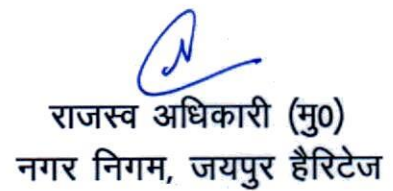 राजस्व अधिकारी (मु0)
नगर निगम, जयपुर हैरिटेज